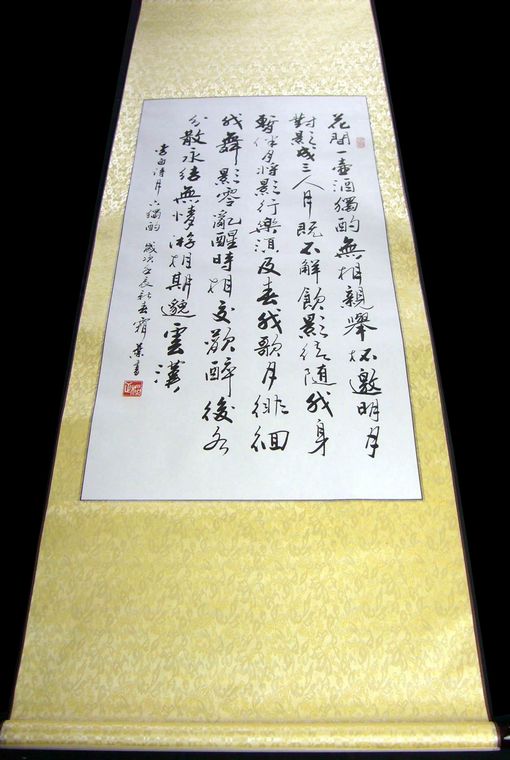 花間一壺酒獨酌無相親舉杯邀明月
對影成三人月既不解飲影徒隨我身
暫伴月將影行樂須及春我歌月徘徊
我舞影零亂醒時相交歡醉後各
分散永結無情游相期邈雲漢
李白詩月下獨酌 歲次